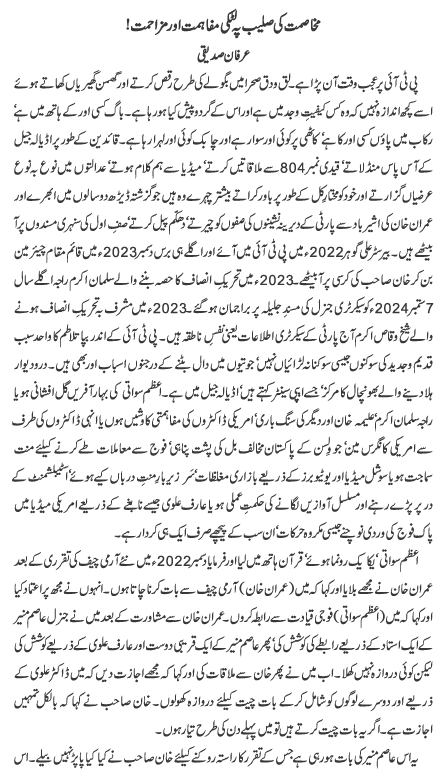 مخاصمت کی صلیب پہ لٹکی مفاہمت اور مزاحمت!
عرفان صدیقی
پی ٹی آئی پر عجب وقت آن پڑا ہے۔ لق ودق صحرا میں بگولے کی طرح رقص کرتے اور گھمن گھیریاں کھاتے ہوئے
اسے کچھ اندازہ نہیں کہ وہ کس کیفیتِ وجد میں ہے اور اس کے گردوپیش کیا ہو رہا ہے۔ باگ کسی اور کے ہاتھ میں ہے‘
رکاب میں پاؤں کسی اور کا ہے‘ کاٹھی پر کوئی اور سوار ہے اور چابک کوئی اور لہرا رہا ہے۔ قائدین کے طور پر اڈیالہ جیل
کے آس پاس منڈلاتے‘ قیدی نمبر 804 سے ملاقاتیں کرتے‘ میڈیا سے ہم کلام ہوتے‘ عدالتوں میں نوع بہ نوع
عرضیاں گزارتے اور خود کو مختارِ کل کے طور پر باور کراتے بیشتر چہرے وہ ہیں جو گزشتہ ڈیڑھ دو سالوں میں ابھرے اور
عمران خان کی اشیرباد سے پارٹی کے دیرینہ نشینوں کی صفوں کو چیرتے‘ دھکم پیل کرتے‘ صفِ اول کی سنہری مسندوں پر آ
بیٹھے ہیں۔ بیرسٹر علی گوہر 2022ء میں پی ٹی آئی میں آئے اور اگلے ہی برس دسمبر 2023ء میں قائم مقام چیئرمین
بن کر خان صاحب کی کرسی پر آ بیٹھے۔ 2023ء میں تحریک انصاف کا حصہ بننے والے سلمان اکرم راجہ اگلے سال
7 ستمبر 2024ء کو سیکرٹری جنرل کی مسندِ جلیلہ پر براجمان ہو گئے۔ 2023ء میں مشرف بہ تحریک انصاف ہونے
والے شیخ وقاص اکرم آج پارٹی کے سیکرٹری اطلاعات یعنی نفسِ ناطقہ ہیں۔ پی ٹی آئی کے اندر بپا تلاطم کا واحد سبب
قدیم وجدید کی سوکنوں جیسی سوکنانہ لڑائیاں نہیں‘ جوتیوں میں دال بٹنے کے درجنوں اسباب اور بھی ہیں۔ در و دیوار
ہلا دینے والے بھونچال کا مرکز‘ جسے اپی سینٹر کہتے ہیں‘ اڈیالہ جیل میں ہے۔ اعظم سواتی کی بہار آفریں گل افشانی ہو یا
راجہ سلمان اکرم‘ علیمہ خان اور دیگر کی سنگ باری‘ امریکی ڈاکٹروں کی مفاہمتی کاوشیں ہوں یا انہی ڈاکٹروں کی طرف
سے امریکی کانگرس مین‘ جو ولسن کے پاکستان مخالف بل کی پشت پناہی‘ فوج سے معاملات طے کرنے کیلئے منت
سماجت ہو یا سوشل میڈیا اور یوٹیوبرز کے ذریعے بازاری مغلظات‘ سَر زیرِ بارِ منتِ درباں کیے ہوئے‘ اسٹیبلشمنٹ کے
در پر پڑے رہنے اور مسلسل آوازیں لگانے کی حکمتِ عملی ہو یا عارف علوی جیسے نابغے کے ذریعے امریکی میڈیا میں
پاک فوج کی وردی نوچنے جیسی مکروہ حرکات‘ ان سب کے پیچھے صرف ایک ہی کردار ہے۔
اعظم سواتی‘ یکایک رونما ہوئے‘ قرآن ہاتھ میں لیا اور فرمایا دسمبر 2022ء میں نئے آرمی چیف کی تقرری کے بعد
عمران خان نے مجھے بلایا اور کہا کہ میں (عمران خان) آرمی چیف سے بات کرنا چاہتا ہوں۔ انہوں نے مجھ پر اعتماد کیا
اور کہا کہ میں (اعظم سواتی) فوجی قیادت سے رابطہ کروں۔ عمران خان سے مشاورت کے بعد میں نے جنرل عاصم منیر
کے ایک استاد کے ذریعے رابطے کی کوشش کی‘ پھر عاصم منیر کے ایک قریبی دوست اور عارف علوی کے ذریعے کوشش کی
لیکن کوئی دروازہ نہیں کھلا۔ اب میں نے پھر خان سے ملاقات کی اور کہا کہ مجھے اجازت دیں کہ میں ڈاکٹر علوی کے
ذریعے اور دوسرے لوگوں کو شامل کر کے بات چیت کیلئے دروازہ کھولوں۔ خان صاحب نے کہا کہ بالکل تمہیں
اجازت ہے۔ اگر یہ بات چیت کرتے ہیں تو میں پہلے دن کی طرح تیار ہوں۔
یہ اس عاصم منیر کی بات ہو رہی ہے جس کے تقرر کا راستہ روکنے کیلئے خان صاحب نے کیا کیا پاپڑ نہیں بیلے۔ اس